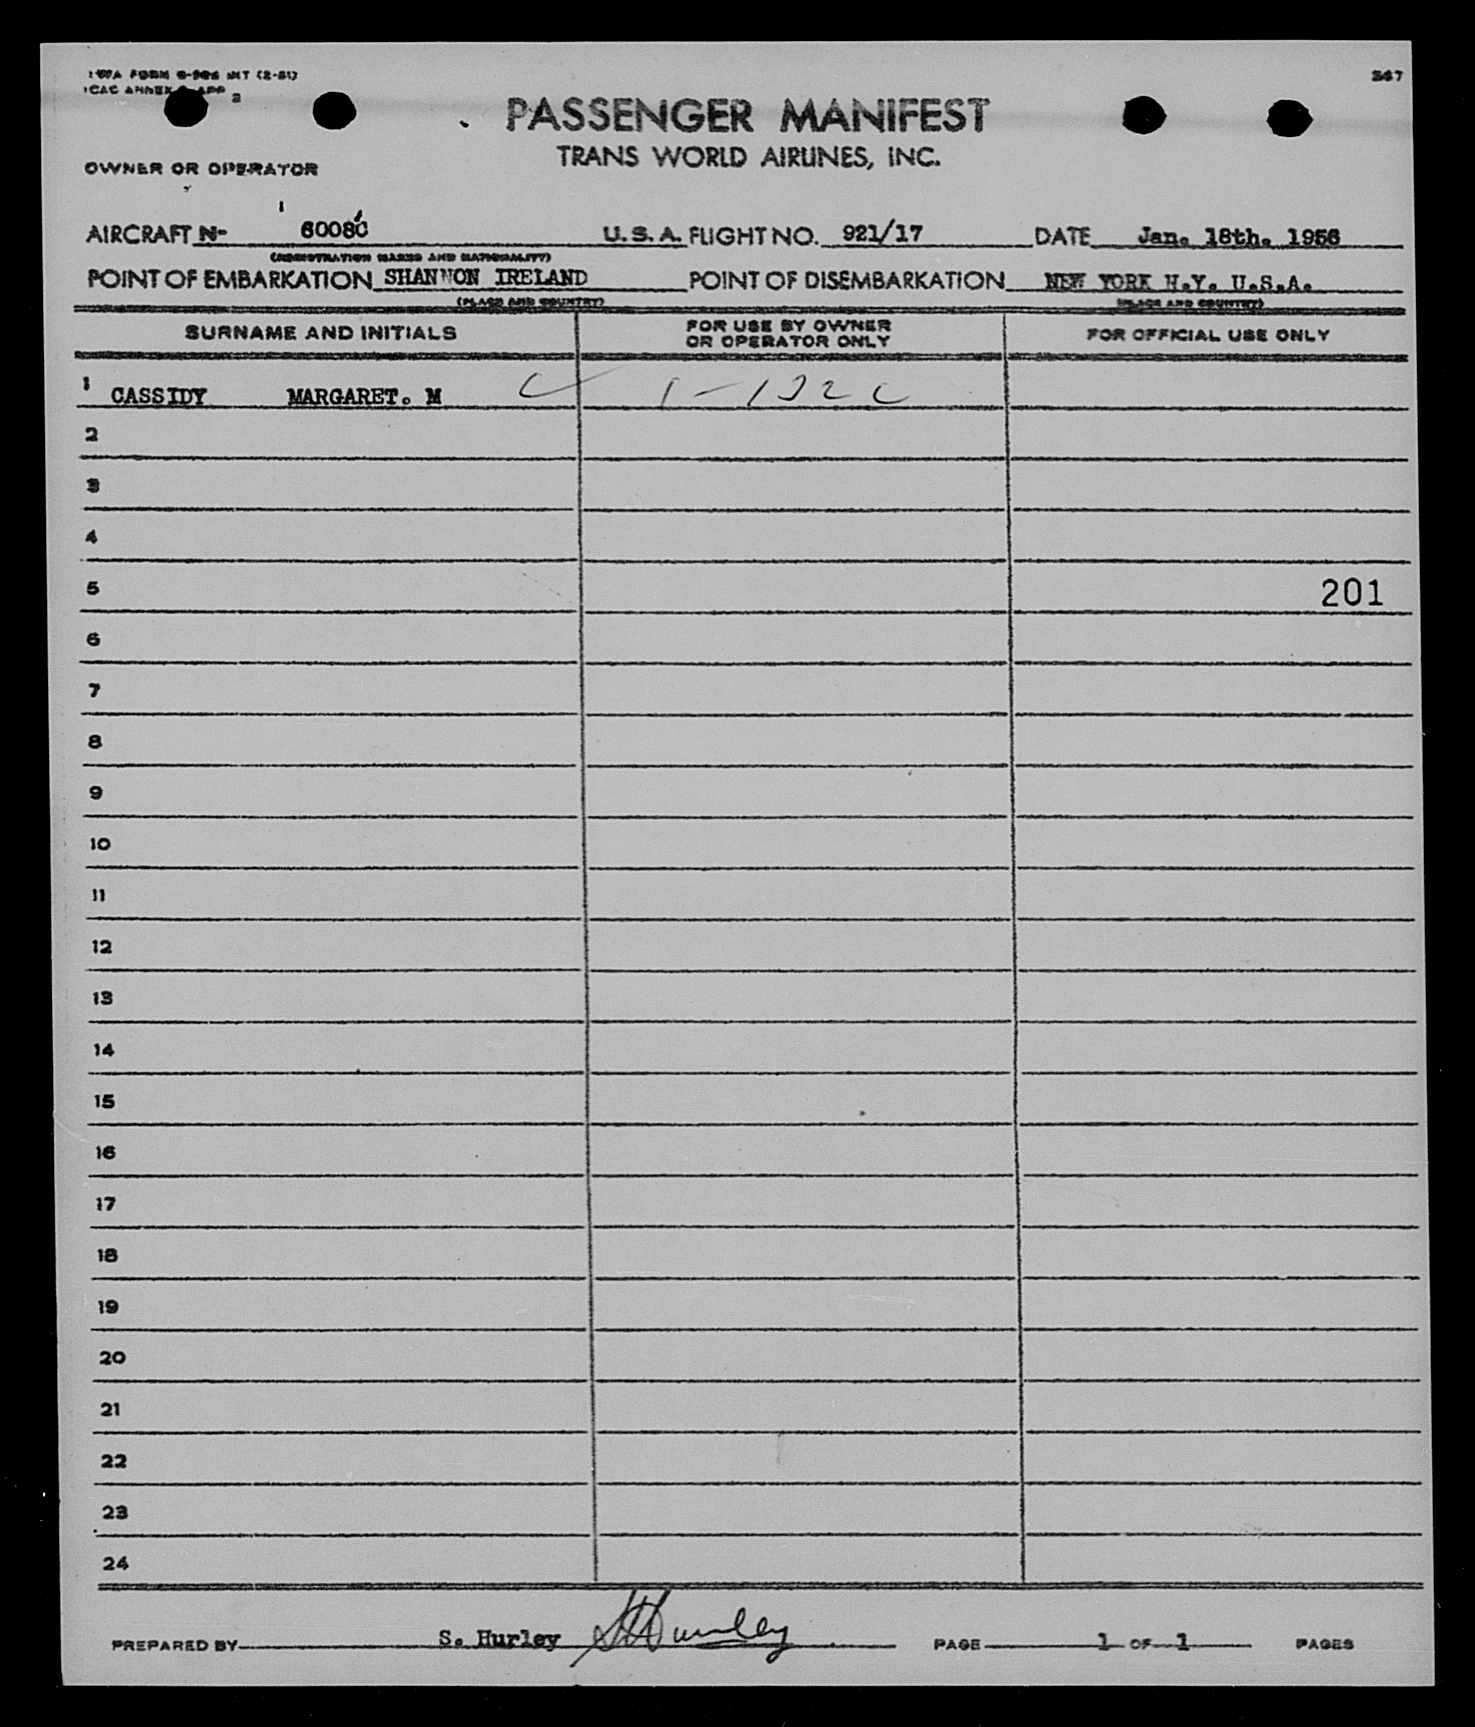 TWA FORM
347
ICAO ANNEX 9 APP 2
PASSENGER MANIFEST
TRANS WORLD AIRLINES, INC.
OWNER OR OPERATOR
AIRCRAFT N- U.S.A. FLIGHT NO. 921/17 DATE Jan. 18th. 1956
(REGISTRATION MARKS AND NATIONALITY)
POINT OF EMBARKATION SHANNON IRELAND POINT OF DISEMBARKATION NEW YORK N.Y. U.S.A.
(PLACE AND COUNTRY) (PLACE AND COUNTRY)
SURNAME AND INITIALS FOR USE BY OWNER OR OPERATOR ONLY FOR OFFICIAL USE ONLY
1 CASSIDY MARGARET. M
2
3
4
5 201
6
7
8
9
10
11
12
13
14
15
16
17
18
19
20
21
22
23
24
PREPARED BY S. Hurley SHurley PAGE 1 OF 1 PAGES